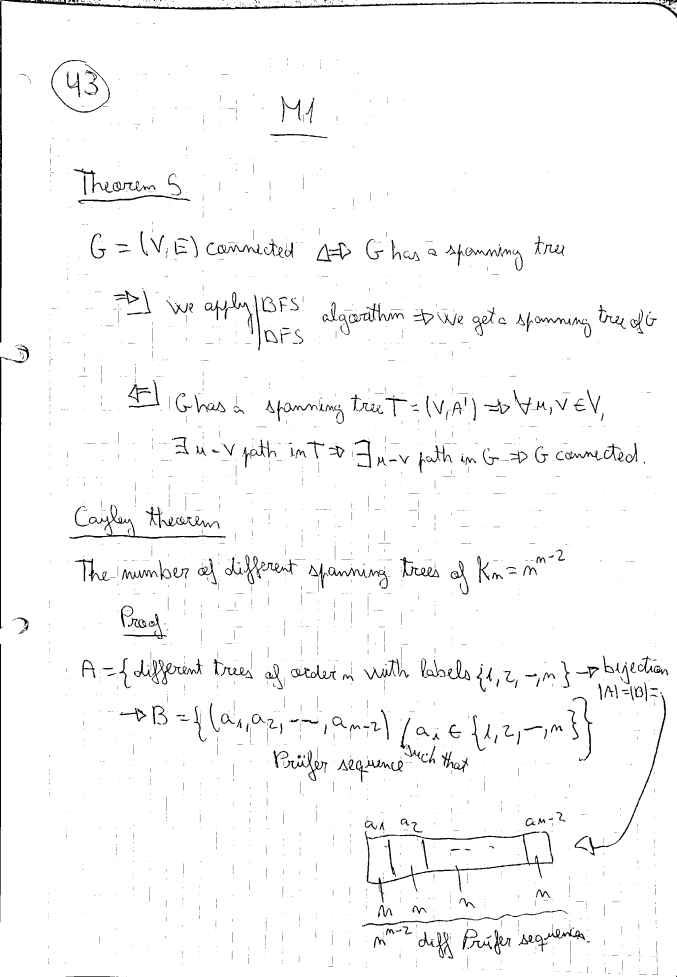 43
M1
Theorem 5
G = (V, E) connected ⇔ G has a spanning tree
⇒] We apply | BFS
DFS algorithm ⇒ We get a spanning tree of G
⇐] G has a spanning tree T = (V, A') ⇒ ∀ u, v ∈ V,
∃ u-v path in T ⇒ ∃ u-v path in G ⇒ G connected.
Cayley theorem
The number of different spanning trees of Kn = n^{n-2}
Proof.
A = { different trees of order n with labels {1, 2, --, n} → bijection
|A| = |B| =
→ B = {(a1, a2, ---, an-2) / ai ∈ {1, 2, --, n}}
such that
Prüfer sequence
a1 a2 an-2
-- -
n n n n
n^{n-2} diff Prüfer sequences.